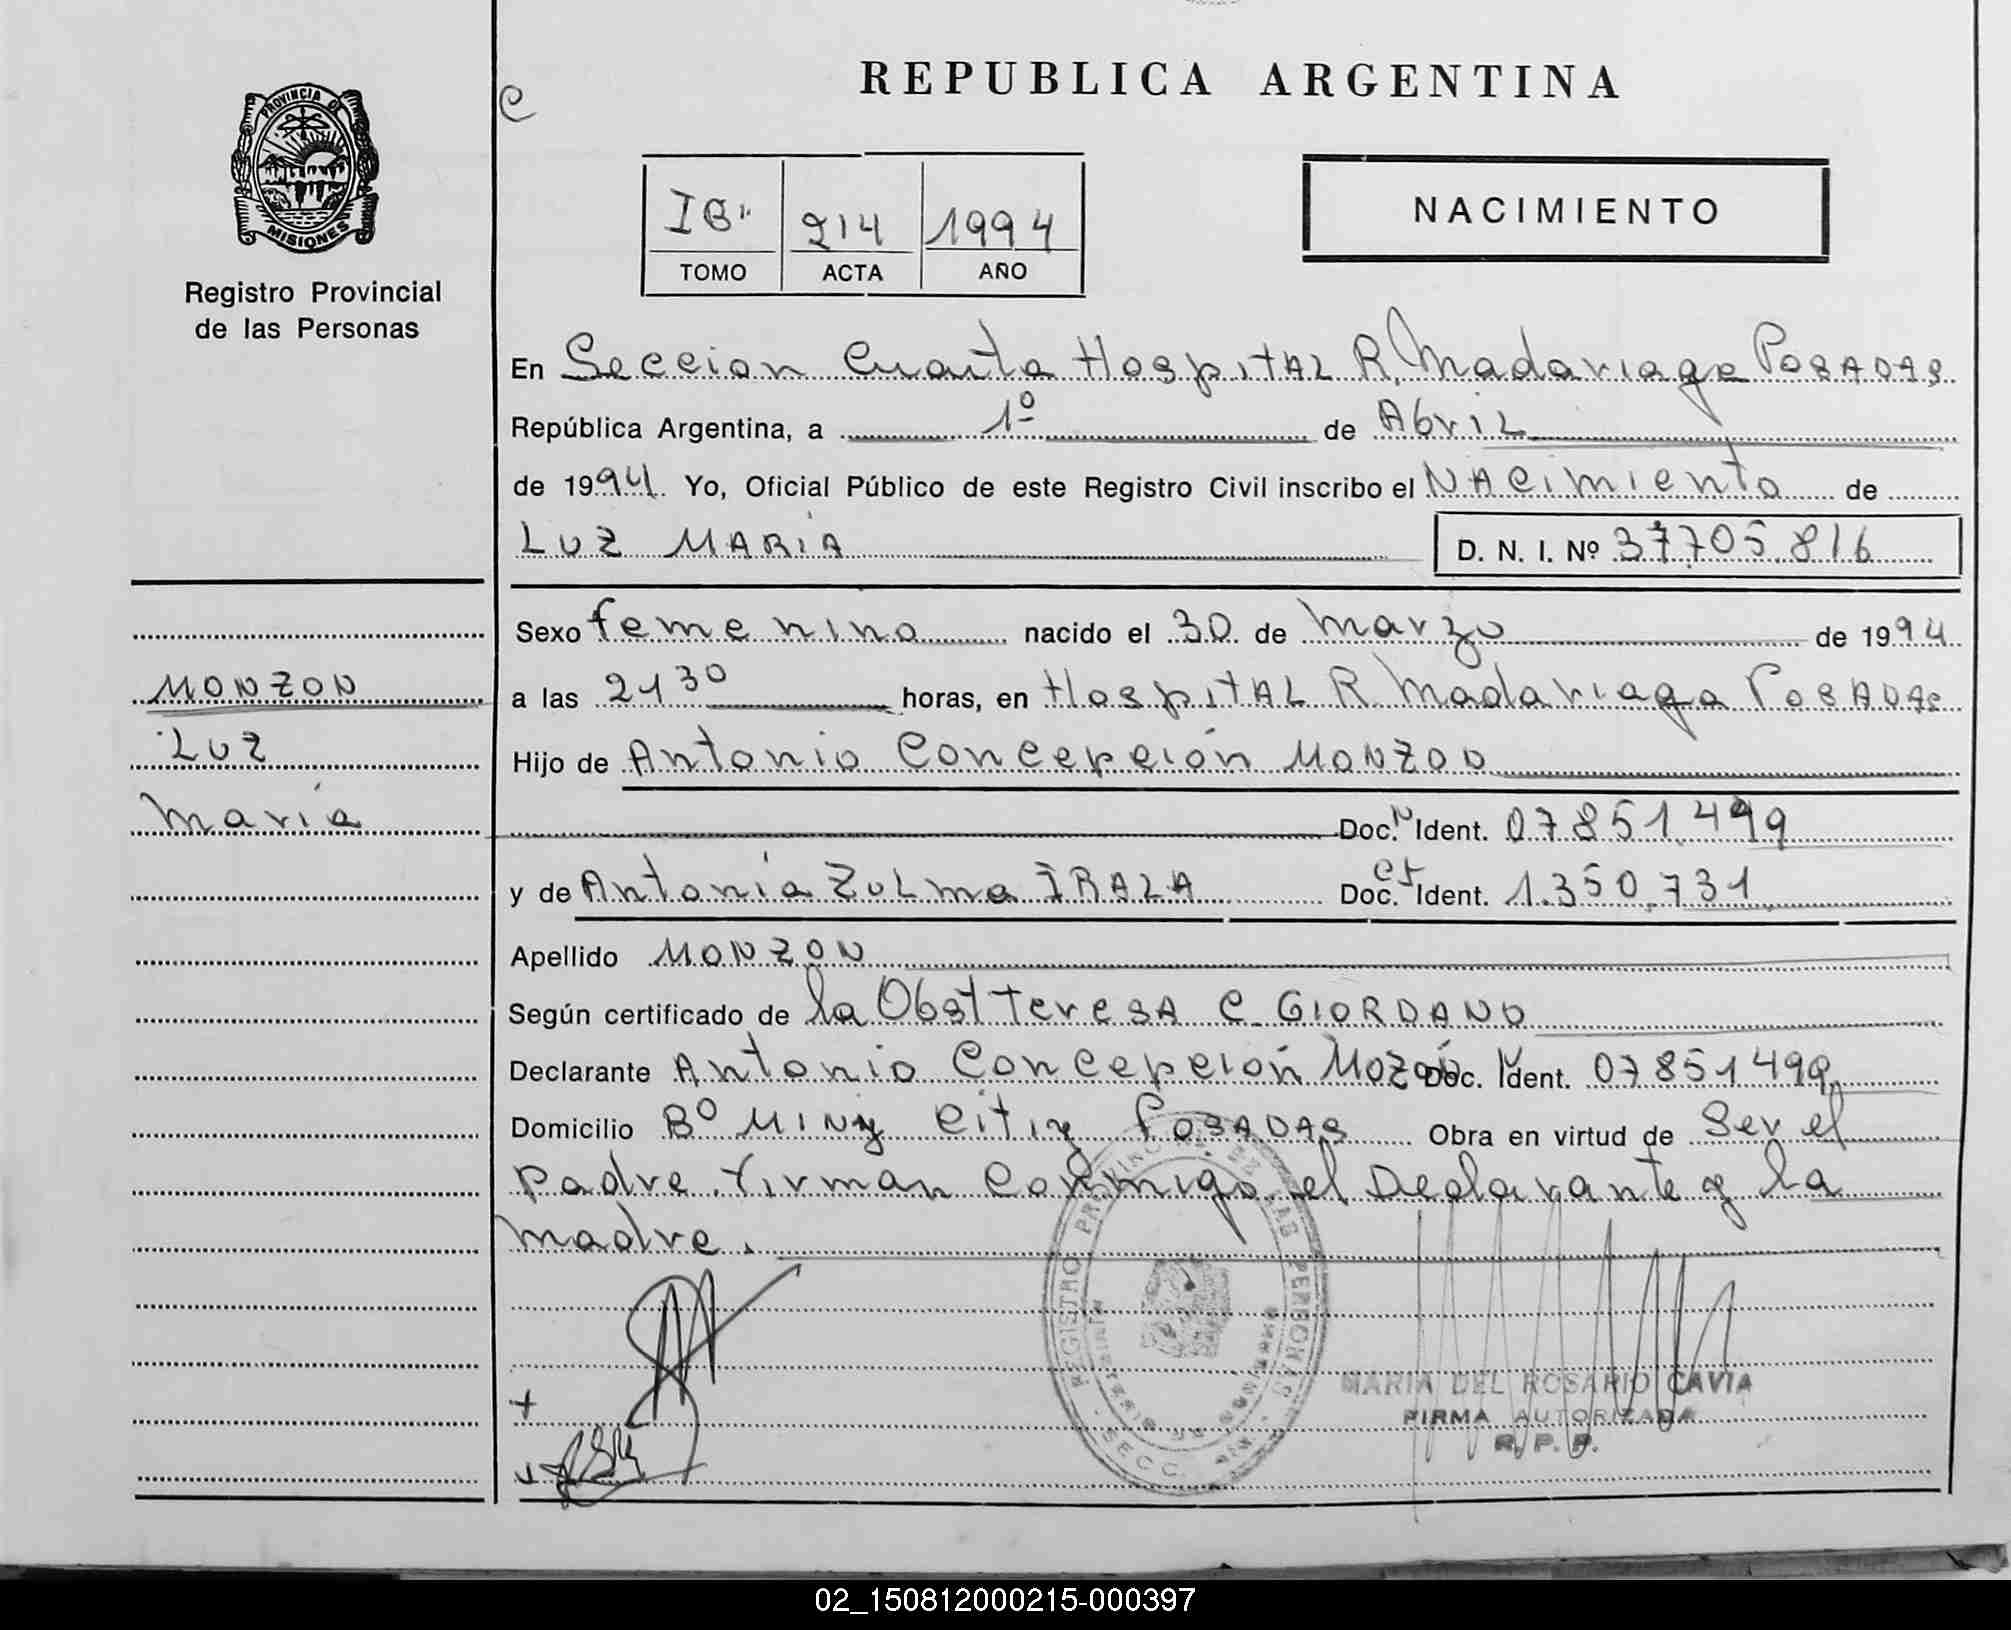 REPUBLICA ARGENTINA
PROVINCIA DE
MISIONES
Registro Provincial
de las Personas
e
IB" 214 1994
TOMO ACTA AÑO
NACIMIENTO
En Seccion Cuarta Hospital R. Madariaga Posadas
República Argentina, a 1º de Abril
de 1994. Yo, Oficial Público de este Registro Civil inscribo el Nacimiento de
LUZ MARIA
D. N. I. Nº 37.705.816
Sexo femenino nacido el 30 de Marzo de 1994
a las 21 30 horas, en Hospital R Madariaga Posadas
Hijo de Antonio Concepción MONZON
Doc. N Ident. 07851499
y de Antonía Zulma IRALA Doc. CI Ident. 1.350.731
Apellido MONZON
Según certificado de la Obst Teresa C. GIORDANO
Declarante Antonio Concepción Mozón Doc. N Ident. 07851499
Domicilio Bº Miny City Posadas Obra en virtud de Ser el
padre. Firman Conmigo el Declarante y la
madre.
MONZON
LUZ
María
REGISTRO PROVINCIAL DE LAS PERSONAS
SECC.
MARIA DEL ROSARIO CAVIA
FIRMA AUTORIZADA
R. P. P.
02_150812000215-000397